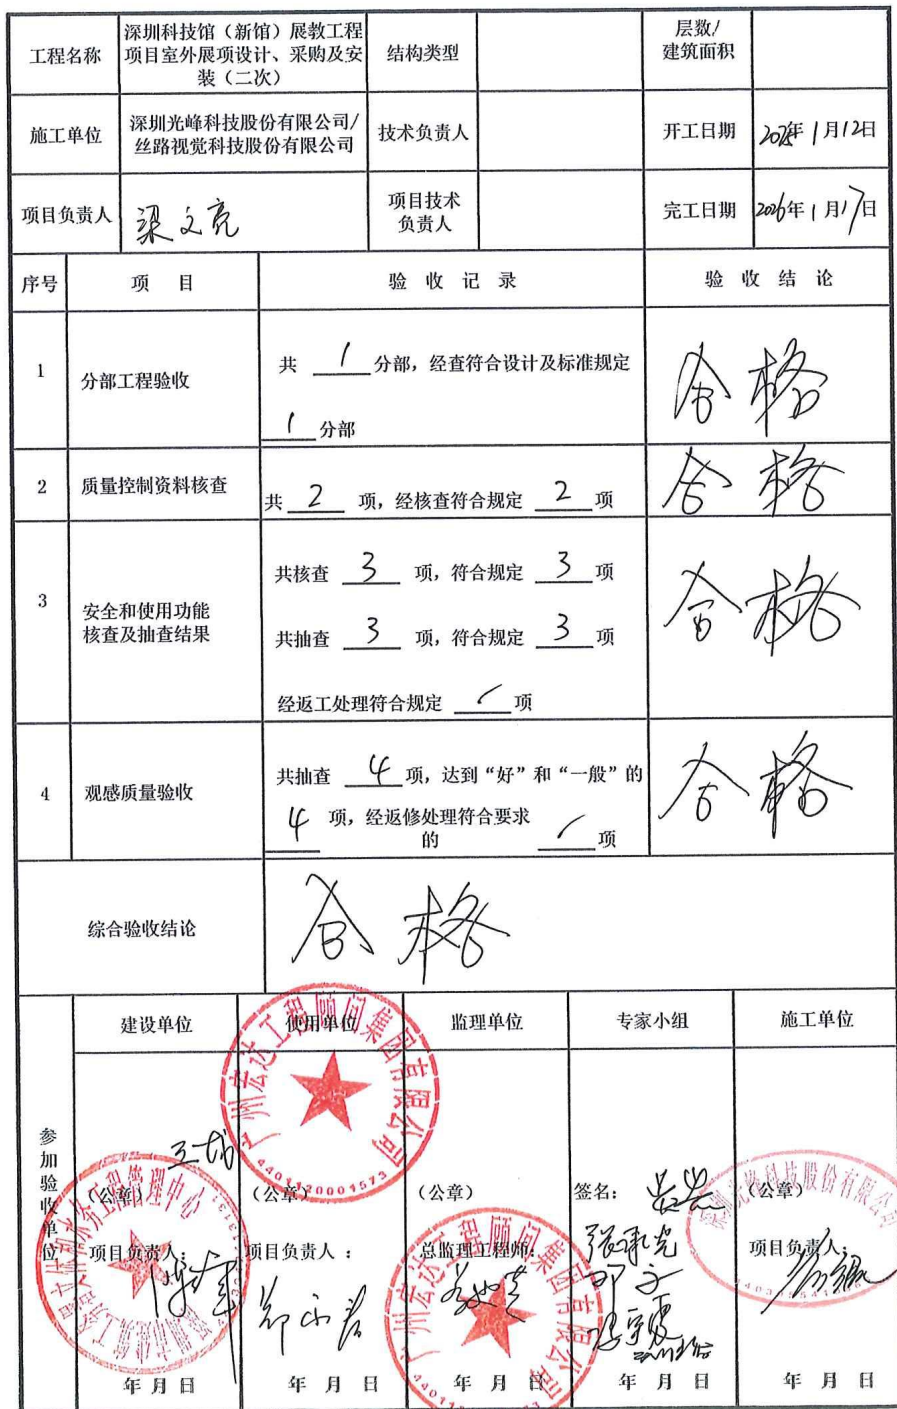 工程名称
深圳科技馆（新馆）展教工程
项目室外展项设计、采购及安
装（二次）
结构类型
层数/
建筑面积
施工单位
深圳光峰科技股份有限公司/
丝路视觉科技股份有限公司
技术负责人
开工日期
年1月12日
项目负责人
梁文亮
项目技术
负责人
完工日期
2026年1月17日
序号
项 目
验 收 记 录
验 收 结 论
1
分部工程验收
共 1 分部，经查符合设计及标准规定
1 分部
合格
2
质量控制资料核查
共 2 项，经核查符合规定 2 项
合格
3
安全和使用功能
核查及抽查结果
共核查 3 项，符合规定 3 项
共抽查 3 项，符合规定 3 项
经返工处理符合规定 / 项
合格
4
观感质量验收
共抽查 4 项，达到“好”和“一般”的
4 项，经返修处理符合要求
的 / 项
合格
综合验收结论
合格
参加验收单位
建设单位
使用单位
监理单位
专家小组
施工单位
广州宏达工程顾问集团有限公司
4401120001573
（公章）
项目负责人：
年 月 日
（公章）
项目负责人：
年 月 日
（公章）
总监理工程师：
广州宏达工程顾问集团有限公司
年 月 日
签名：
年 月 日
（公章）
项目负责人：
年 月 日